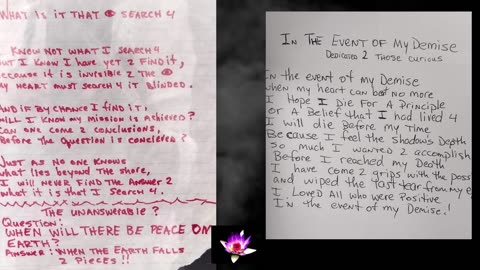 WHAT IS IT THAT 👁 SEARCH 4
KNOW NOT WHAT I SEARCH 4
BUT I KNOW I HAVE YET 2 FIND IT,
BECAUSE IT IS INVISIBLE 2 THE 👁
MY HEART MUST SEARCH 4 IT BLINDED.
AND IF BY CHANCE I FIND IT,
WILL I KNOW MY MISSION IS ACHIEVED?
CAN ONE COME 2 CONCLUSIONS,
BEFORE THE QUESTION IS CONCIEVED?
JUST AS NO ONE KNOWS
WHAT LIES BEYOND THE SHORE,
I WILL NEVER FIND THE ANSWER 2
WHAT IT IS THAT I SEARCH 4.
THE UNANSWERABLE ?
QUESTION:
WHEN WILL THERE BE PEACE ON
EARTH?
ANSWER: WHEN THE EARTH FALLS
2 PIECES!!
IN THE EVENT OF MY DEMISE
DEDICATED 2 THOSE CURIOUS
In the event of my Demise
when my heart can beat no more
I Hope I Die For A Principle
or A Belief that I had lived 4
I will die Before my Time
Because I feel the shadow's Depth
so much I wanted 2 accomplish
Before I reached my Death
I have come 2 grips with the poss
and wiped the last tear from my e
I Loved All who were Positive
In the event of my Demise!